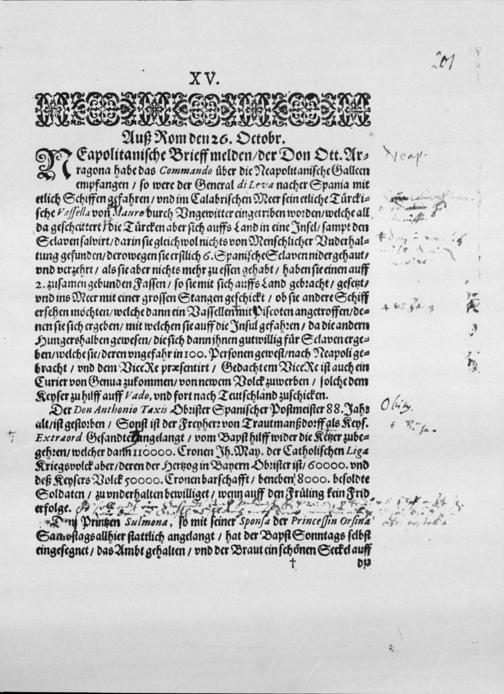 201
XV.
Auß Rom den 26. Octobr.
NEapolitanische Brieff melden / der Don Ott. Ar-
ragona habe das Commando über die Neapolitanische Galleen
empfangen / so were der General di Leva nacher Spania mit
etlich Schiffen gefahren / vnd im Calabrischen Meer sein etliche Türcki-
sche Vassella von Mauro durch Vngewitter eingetriben worden / welche all
da gescheittert / die Türcken aber sich auffs Land in eine Insel / sampt den
Sclaven salvirt / darin sie gleichwol nichts von Menschlicher Vnderhal-
tung gefunden / derowegen sie erstlich 6. Spanische Sclaven nidergehaut /
vnd verzehrt / als sie aber nichts mehr zu essen gehabt / haben sie einen auff
2. zusamen gebunden Fassen / so sie mit sich auffs Land gebracht / gesetzt /
vnd ins Meer mit einer grossen Stangen geschickt / ob sie andere Schiff
ersehen möchten / welche dann ein Vassellen mit Piscoten angetroffen / de-
nen sie sich ergeben / mit welchen sie auff die Insul gefahren / da die andern
Hungers halben gewesen / die sich dann ihnen gutwillig für Sclaven erge-
ben / welche sie / deren vngefahr in 100. Personen gewest / nach Neapoli ge-
bracht / vnd dem ViceRe præsentirt / Gedachtem ViceRe ist auch ein
Curier von Genua zukommen / von newem Volck zuwerben / solche dem
Keyser zu hilff auff Vado, vnd fort nach Teutschland zuschicken.
Der Don Anthonio Taxis Obrister Spanischer Postmeister 88. Jahr
alt / ist gestorben / Sonst ist der Freyherr von Trautmanßdorff als Keys.
Extraord Gesandter angelangt / vom Bapst hilff wider die Ketzer zube-
gehren / welcher dann 110000. Cronen Ih. May. der Catholischen Liga
Kriegsvolck aber / deren der Hertzog in Bayern Obrister ist / 60000. vnd
deß Keysers Volck 50000. Cronen barschafft / beneben 8000. besoldte
Soldaten / zu vnderhalten bewilliget / wenn auff den Früling kein Frid
erfolge.
Dem Printzen Sulmona, so mit seiner Sponsa der Princessin Orsina
Samostags allhier stattlich angelangt / hat der Bapst Sonntags selbst
eingesegnet / das Ambt gehalten / vnd der Braut ein schönen Seckel auff
†